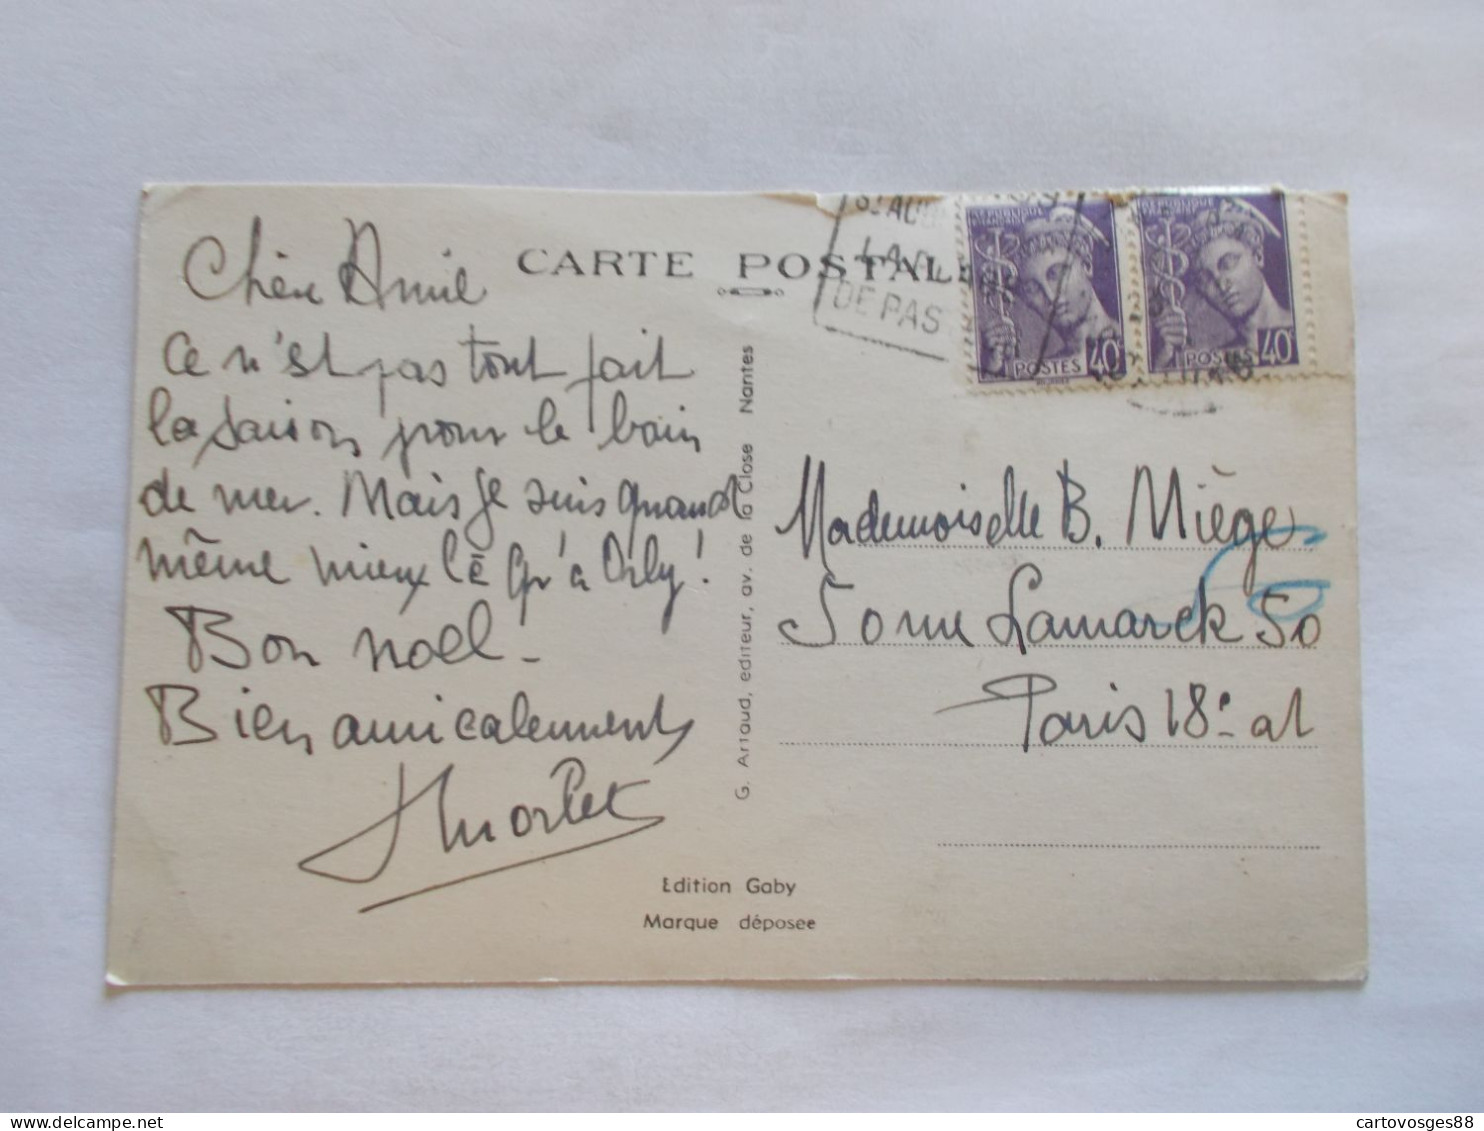 Chère Amie
Ce n'est pas tout fait
la saison pour le bain
de mer. Mais je suis quand
même mieux là qu'à Orly!
Bon noel.
Bien amicalement
CARTE POSTALE
LA
DE PAS
RÉPUBLIQUE FRANÇAISE
POSTES 40
POSTES 40
G. Artaud, editeur, av. de la Close Nantes
Mademoiselle B. Miège
50 rue Lamarck 50
Paris 18e at
Edition Gaby
Marque déposee
cartovosges88